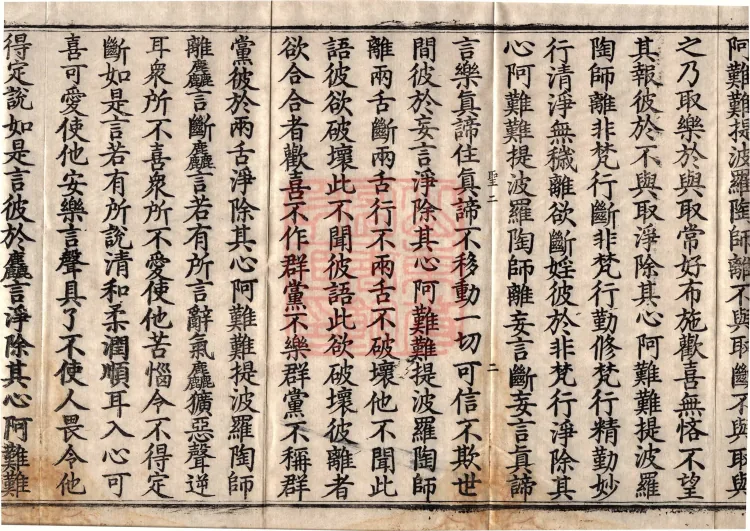 阿難難提波羅陶師離不與取斷不與取與
之乃取樂於與取常好布施歡喜無悋不望
其報彼於不與取淨除其心阿難難提波羅
陶師離非梵行斷非梵行勤修梵行精勤妙
行清淨無穢離欲斷婬彼於非梵行淨除其
心阿難難提波羅陶師離妄言斷妄言真諦
聖二 二
言樂真諦住真諦不移動一切可信不欺世
間彼於妄言淨除其心阿難難提波羅陶師
離兩舌斷兩舌行不兩舌不破壞他不聞此
語彼欲破壞此不聞彼語此欲破壞彼離者
欲合合者歡喜不作群黨不樂群黨不稱群
黨彼於兩舌淨除其心阿難難提波羅陶師
離麤言斷麤言若有所言辭氣麤獷惡聲逆
耳衆所不喜衆所不愛使他苦惱令不得定
斷如是言若有所說清和柔潤順耳入心可
喜可愛使他安樂言聲具了不使人畏令他
得定說如是言彼於麤言淨除其心阿難難